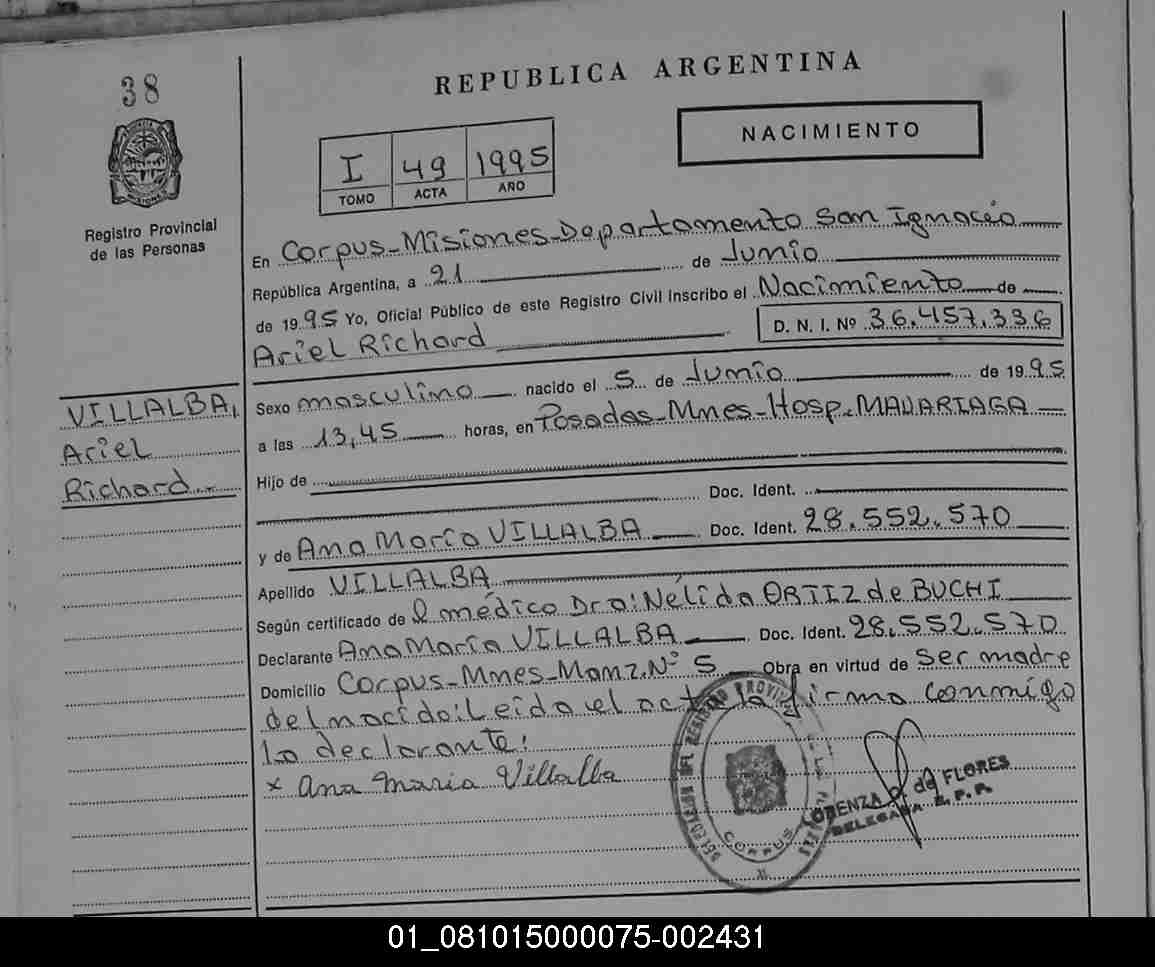 38
REPUBLICA ARGENTINA
NACIMIENTO
I 49 1995
TOMO ACTA AÑO
Registro Provincial
de las Personas
En Corpus-Misiones-Departamento San Ignacio
República Argentina, a 21 de Junio
de 1995 Yo, Oficial Público de este Registro Civil Inscribo el Nacimiento de
Ariel Richard D. N. I. Nº 36.457.336
VILLALBA,
Ariel
Richard
Sexo masculino nacido el 5 de Junio de 1995
a las 13,45 horas, en Posadas-Mnes-Hosp. MADARIAGA
Hijo de
Doc. Ident.
y de Ana María VILLALBA Doc. Ident. 28.552.570
Apellido VILLALBA
Según certificado de l médico Dra: Nélida ORTIZ de BUCHI
Declarante Ana María VILLALBA Doc. Ident. 28.552.570
Domicilio Corpus-Mnes-Manz. Nº 5 Obra en virtud de ser madre
del nacido: Leido el acta la firma conmigo
la declarante.
x Ana Maria Villalba
CORPUS
LORENZA de FLORES
DELEGADA R. P. P.
01_081015000075-002431